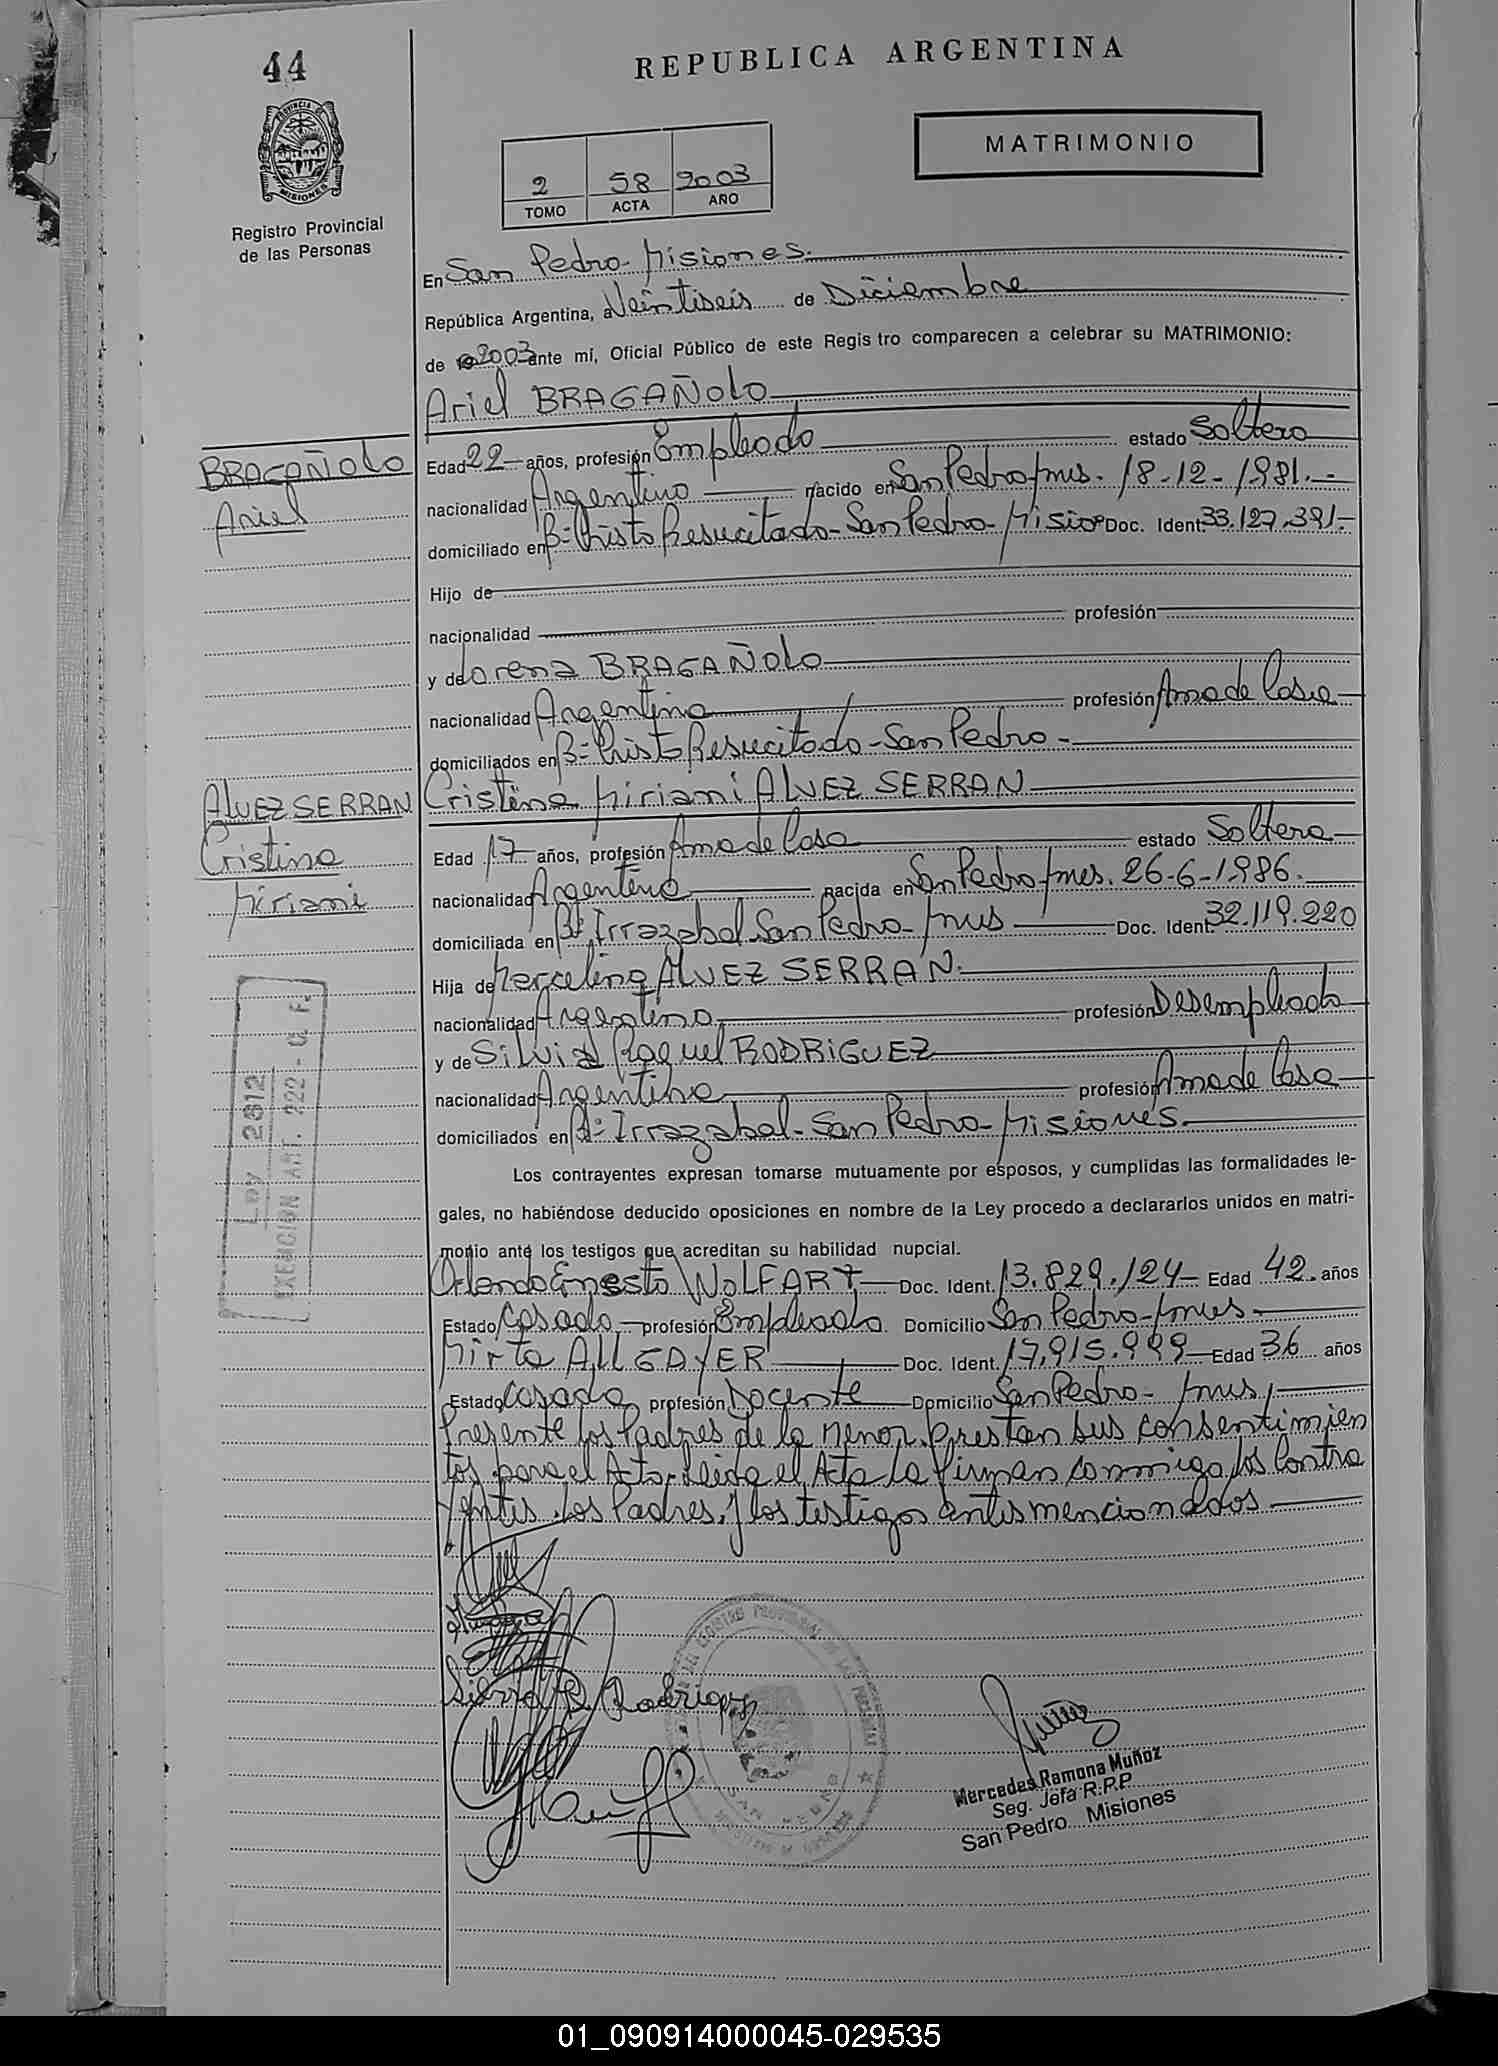 44
REPUBLICA ARGENTINA
PROVINCIA DE
MISIONES
MATRIMONIO
2 58 2003
TOMO ACTA AÑO
Registro Provincial
de las Personas
En San Pedro-Misiones.
República Argentina, a Veintiseis de Diciembre
de 2003 ante mí, Oficial Público de este Regis tro comparecen a celebrar su MATRIMONIO:
Ariel BRAGAÑOLO
BRAGAÑOLO
Ariel
Edad 22 años, profesión Empleado estado Soltero
nacionalidad Argentino nacido en San Pedro-Mnes. 18-12-1981.-
domiciliado en B=Cristo Resucitado-San Pedro-Misio Doc. Ident. 33.127.391.-
Hijo de
nacionalidad profesión
y de Lorena BRAGAÑOLO
nacionalidad Argentina profesión Ama de Casa
domiciliados en B=Cristo Resucitado-San Pedro-
ALVEZ SERRAN
Cristina
Miriami
Cristina Miriami ALVEZ SERRAN
Edad 17 años, profesión Ama de Casa estado Soltera
nacionalidad Argentina nacida en San Pedro-Mnes. 26-6-1986.
domiciliada en B= Irrazabal-San Pedro-Mnes Doc. Ident. 32.119.220
Hija de Marcelino ALVEZ SERRAN.
nacionalidad Argentino profesión Desempleado
y de Silvia Raquel RODRIGUEZ
nacionalidad Argentina profesión Ama de Casa
domiciliados en B= Irrazabal-San Pedro-Misiones
Ley 2612
EXENCION ART. 222 - C. F.
Los contrayentes expresan tomarse mutuamente por esposos, y cumplidas las formalidades le-
gales, no habiéndose deducido oposiciones en nombre de la Ley procedo a declararlos unidos en matri-
monio ante los testigos que acreditan su habilidad nupcial.
Orlando Ernesto WOLFART Doc. Ident. 13.829.124 Edad 42. años
Estado Casado profesión Empleado Domicilio San Pedro-Mnes
Mirta ALLGAYER Doc. Ident. 17.915.999 Edad 36 años
Estado Casada profesión Docente Domicilio San Pedro-Mnes,
Presente los Padres de la menor, Prestan sus consentimien
tos para el Acto-Leida el Acta la firman conmigo, los Contra
yentes, los Padres, y los testigos antes mencionados
Silvia R Rodriguez
REGISTRO PROVINCIAL DE LAS PERSONAS
SAN PEDRO
Mercedes Ramona Muñoz
Seg. Jefa R.P.P
San Pedro Misiones
01_090914000045-029535